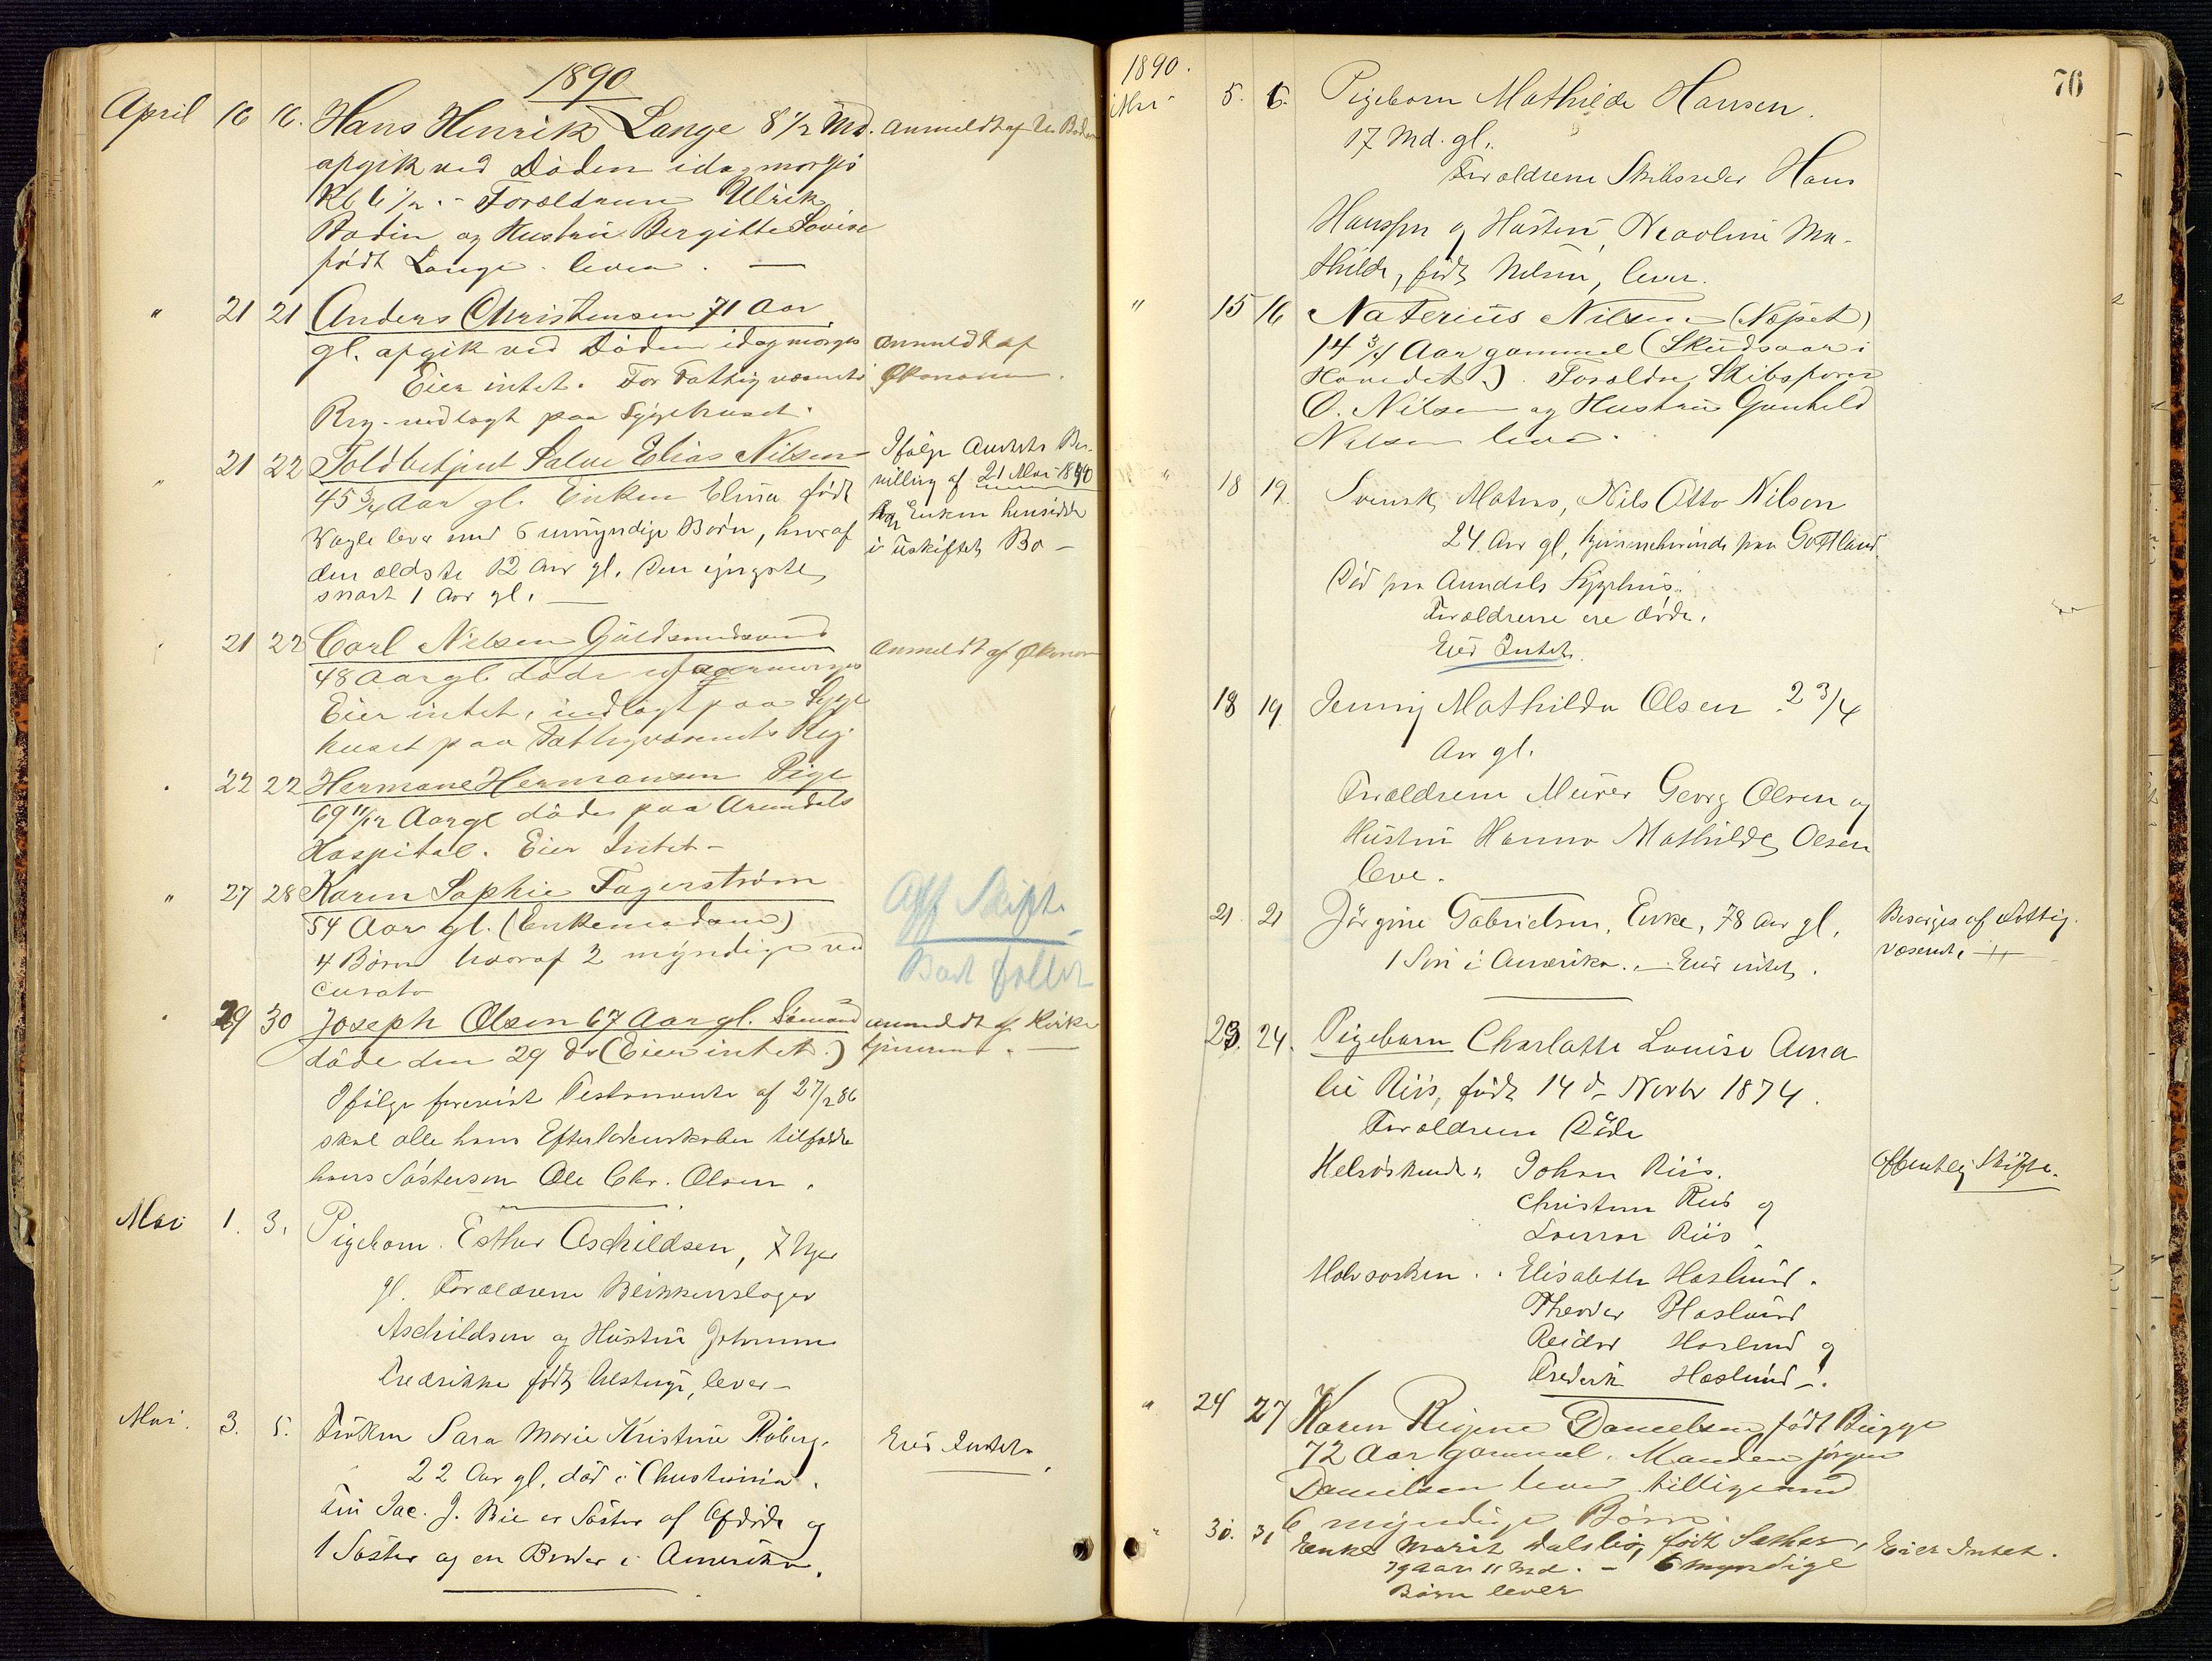 1890
April 16 16. Hans Henrik Lange 8 1/2 Md. anmeldt af
afgik ved Döden idag morges
Kl 6 1/2 . - Forældrene Ulrik
Bodin og Hustru Bergitte Lovise
født Lange . lever . —
" 21 21 Anders Christensen 71 Aar
gl. afgik ved Döden idag morges anmeldt af
Eier intet. For Fattigvæsenets Økonomen.
Reg. indlagt paa Sygehuset.
" 21 22 Toldbetjent Salve Elias Nilsen Ifølge Amtets Be-
45 3/4 Aar gl. Enken Elina født villing af 21 Mai 1890
Vagle lever med 6 umyndige Børn, hvoraf Enken hensidde
den ældste 12 Aar gl. Den yngste i uskiftet Bo -
snart 1 Aar gl. —
21 22 Carl Nilsen Guldsmedsvend anmeldt af Økonom
48 Aar gl döde
Eier intet, indlagt paa Syge
huset paa Fattigvæsenets Reg.
22 22 Hermane Hermansen Pige
69 11/12 Aar gl döde paa Arendals
Hospital. Eier Intet -
" 27 28 Karen Sophie Fagerström
54 Aar gl. (Enkemadam) Off Skifte
4 Børn hvoraf 2 myndige med
curator Boet
29 30 Joseph Olsen 67 Aar gl. Sömand anmeldt af Kirke
döde den 29 ds (Eier intet.) tjeneren . —
Ifølge forevist Testamente af 27/2 86
skal alle hans Efterladenskaber tilfalde
hans Søstersøn Ole Chr. Olsen .
Mai 1. 3. Pigebarn. Esther Aschildsen, 7 Uger
gl. Forældrene Blikkenslager
Aschildsen og Hustru Johanne
Fredrikke født , lever -
Mai. 3. 5. Frøken Sara Marie Kristine Röberg. Eier Intet.
22 Aar gl. död i Christiania.
Fru Jac. J. Bie er Søster af Afdøde og
1 Søster og en Broder i Amerika.
76
1890.
Mai 5. 6. Pigebarn Mathilde Hansen.
17 Md. gl.
Forældrene Skibsreder Hans
Hanssen og Hustru, Karoline Ma-
thilde, født Nilsen, lever.
" 15 16 Naterius Nilsen (Næset)
14 3/4 Aar gammel (Skudsaar i
Hovedet.). Forældre Skibsfører
O. Nilsen og Hustru Gunhild
Nilsen lever.
" 18 19. Svensk Matros, Nils Otto Nilson
24 Aar gl, hjemmehørende paa Gottland
Død paa Arendals Sygehus.
Forældrene ere døde.
Eier Intet.
18 19 Jenny Mathilda Olsen . 2 3/4
Aar gl.
Forældrene Murer Georg Olsen og
Hustru Hanna Mathilde Olsen
leve.
21. 21 Jörgine Gabrielsen, Enke, 78 Aar gl. Besørges af Fattig-
1 Søn i Amerika. - Eier intet. væsenet.
23. 24. Pigebarn Charlotte Louise Ama
lie Riis, født 14 d- Novbr 1874.
Forældrene Døde
Helsöskende: Johan Riis. Offentlig Skifte.
Christian Riis og
Riis
Halvsøsken . . Elisabeth Haslund.
Theodor Haslund
Reidar Haslund og
Frederik Haslund -.
" 24 27 Karen Regine Danielsen født Bugge
72 Aar gammel. Manden Jørgen
Danielsen lever tilligemed
6 myndige Børn.
" 30. 31 Enke Marit Dalsbö, født , Eier Intet.
79 Aar 11 Md. - 6 myndige
Børn lever